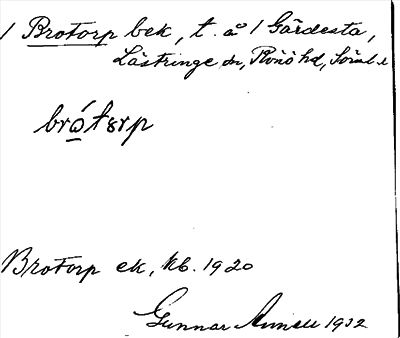 1 Brotorp bek, t. å 1 Gärdesta,
Lästringe sn, Rönö hd, Sörml.
brò̱tɜrp
Brotorp ek, kb. 1920
Gunnar 1932